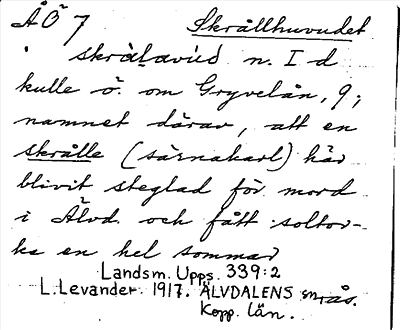 ÅÖ 7 Skrållhuvudet
skråḷavúd n. I d
kulle ö. om Gryvelån, 9;
namnet därav, att en
skrålle (särnakarl) här
blivit steglad för mord
i Älvd. och fått soltor-
ka en hel sommar
Landsm. Upps. 339:2
L. Levander. 1917. ÄLVDALENS sn, ås.
Kopp. län.